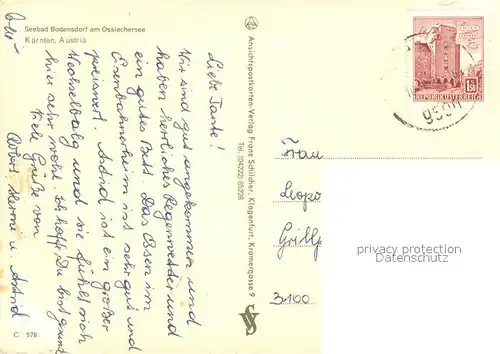 Seebad Bodensdorf am Ossiachersee
Kärnten, Austria
Liebe Tante!
Wir sind gut angekommen und
haben herrliches Regenwetter und
ein gutes Bett. Das Essen im
Eisenbahnerheim ist sehr gut und
preiswert. Astrid ist ein großer
Wechselbalg und sie fühlt sich
hier sehr wohl. Ich hoffe Du bist gesund
Viele Grüße von
Robert Herma u. Astrid
C 576
Ansichtspostkarten-Verlag Franz Schilcher, Klagenfurt, Kramergasse 9
Tel. (04222) 85228
REPUBLIK ÖSTERREICH
9551
Frau
Leopo
Grillp
3100
privacy protection
Datenschutz